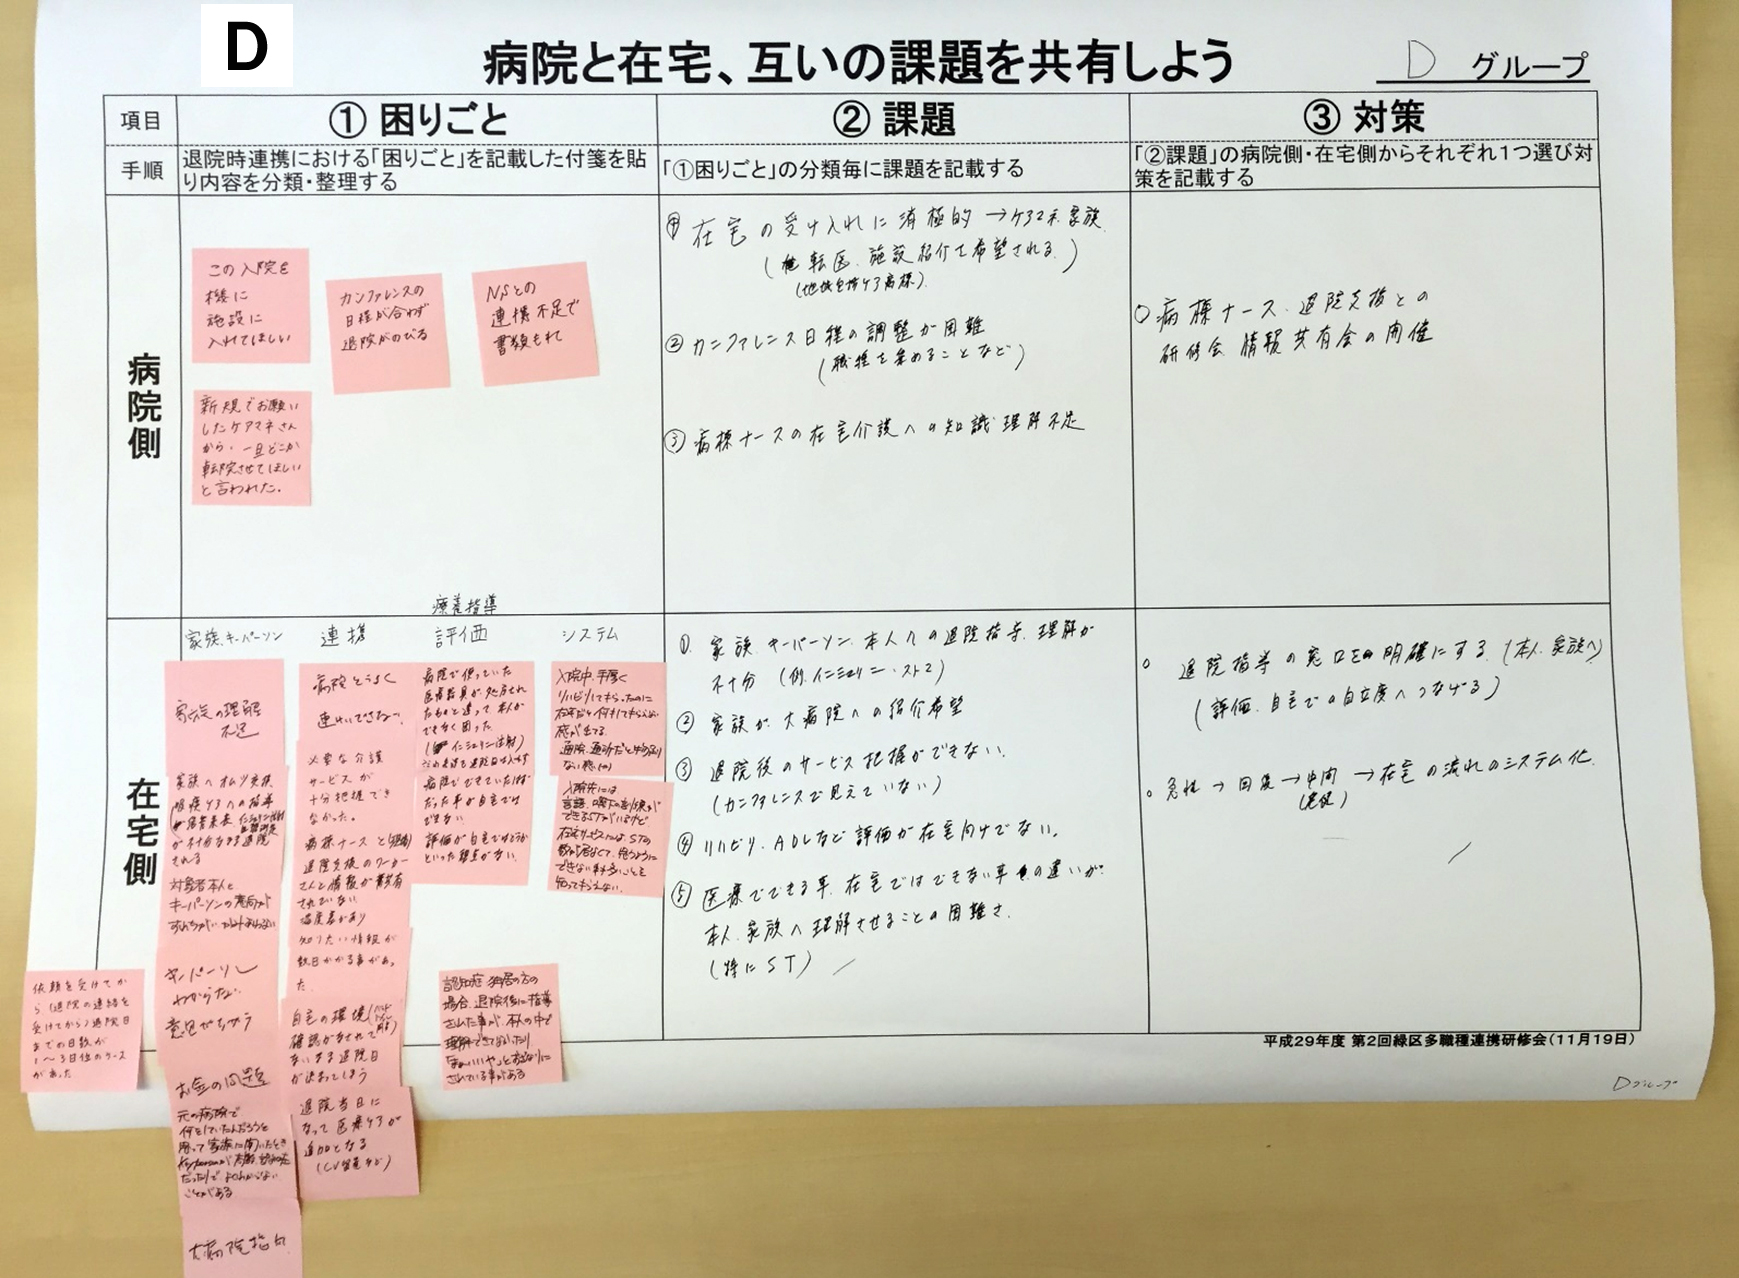 D
病院と在宅、互いの課題を共有しよう
D グループ
項目
① 困りごと
② 課題
③ 対策
手順
退院時連携における「困りごと」を記載した付箋を貼
り内容を分類・整理する
「①困りごと」の分類毎に課題を記載する
「②課題」の病院側・在宅側からそれぞれ1つ選び対
策を記載する
病院側
この入院を
機に
施設に
入れてほしい
カンファレンスの
日程が合わず
退院がのびる
NSとの
連携不足で
書類もれ
新規でお願い
したケアマネさん
から、一旦どこか
転院させてほしい
と言われた。
① 在宅の受け入れに消極的→ケアマネ、家族
(転医、施設紹介を希望される。)
(地域包括ケア病棟)
② カンファレンス日程の調整が困難
(職種を集めることなど)
③ 病棟ナースの在宅介護への知識理解不足
○病棟ナース、退院支援との
研修会、情報共有会の開催
在宅側
療養指導
家族、キーパーソン
連携
評価
システム
家族の理解
不足
家族へオムツ交換、
が不十分なまま退院
される
対象者本人と
キーパーソンの意向が
キーパーソン
わからない
意見がちがう
お金の問題
元の病院で
何をしていたんだろうと
思って家族に聞いたとき
だったりでよくわからない
ことがある
大病院指向
病院とうまく
連携できない
必要な介護
サービスが
十分把握でき
なかった。
病棟ナースと
退院支援のワーカー
さんと情報が共有
されていない
温度差があり
知りたい情報が
数日かかる事があっ
た
自宅の環境
確認がされて
ないまま退院日
が決まってしまう
退院当日に
なって医療ケアが
追加となる
(CV留置など)
病院で使っていた
医療器具が処方され
たものと違って本人が
できなく困った。
(インシュリン注射)
病院でできていたはず
だった事が自宅では
できない
評価が自宅ではどうか
といった視点がない。
入院中、手厚く
リハビリしてもらったのに
在宅だと何もしてもらえない
感が出てる。
通院、通所だともの足り
ない感
入院先には
言語、嚥下の訓練が
できるSTがいるけど
在宅サービスには、STの
数が居なくて、思うように
できない事が多いことを
知ってもらえない。
認知症 独居の方の
場合、退院後に指導
された事が、本人の中で
理解できてなかったり
「まぁいいや」とおざなりに
されている事がある
依頼を受けてか
ら(退院の連絡を
受けてから)退院日
までの日数が
1〜3日位のケース
があった
①. 家族、キーパーソン、本人への退院指導、理解が
不十分 (例、インシュリン、ストマ)
② 家族が、大病院への紹介希望
③ 退院後のサービス把握ができない。
(カンファレンスで見えていない)
④ リハビリ、ADLなど評価が在宅向けでない。
⑤ 医療でできる事、在宅ではできない事の違いが、
本人、家族へ理解させることの困難さ.
(特にST)
○ 退院指導の窓口を明確にする。(本人、家族へ)
(評価、自宅での自立度へつなげる)
○ 急性→回復→中間→在宅の流れのシステム化
(老健)
平成29年度 第2回緑区多職種連携研修会(11月19日)
Dグループ